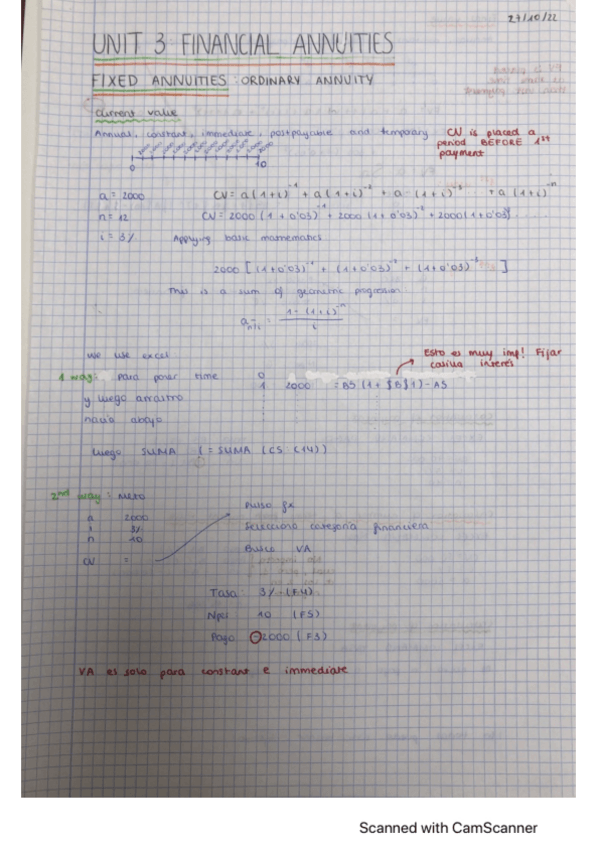 27/10/22
UNIT 3 FINANCIAL ANNUITIES
FIXED ANNUITIES: ORDINARY ANNUITY
Current value
Annual, constant, immediate, postpayable and temporary
CV is placed a
period BEFORE 1st
payment
0 10
a = 2000 CV = a(1+i)^-1 + a(1+i)^-2 + a · (1+i) + a (1+i)^-n
n = 12 CV = 2000 (1+0'03)^-1 + 2000 (1+0'03)^-2 + 2000(1+0'03)
i = 3% Applying basic mathematics
2000 [(1+0'03)^-1 + (1+0'03)^-2 + (1+0'03)^-3 ]
This is a sum of geometric progression
a n|i = 1-(1+i)^-n / i
we use excel
Esto es muy imp! Fijar
casilla interés
1 way: Para poner time 0
1 2000 = B5 (1+$B$1)-A5
y luego arrastro
hacia abajo
Luego SUMA (=SUMA (C5:C14))
2nd way: Meto
a 2000
i 3%
n 10
CV =
Pulso fx
Selecciono categoría financiera
Busco VA
Tasa: 3% (F4)
Nper 10 (F5)
Pago -2000 (F3)
VA es solo para constant e immediate
Scanned with CamScanner